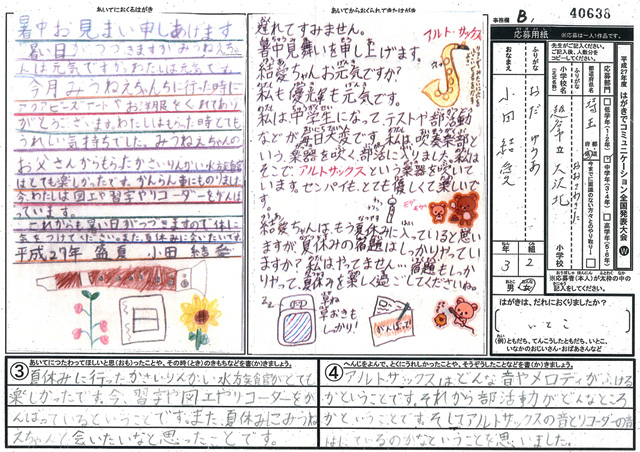 あいてにおくるはがき
暑中お見まい申しあげます
暑い日がつづきますがみつねえち
ゃんは元気ですか。わたしは元気です。
今月みつねえちゃんちに行った時に
アクアビーズアートやお洋服をくれてあり
がとうございます。わたしはもらった時とても
うれしい気持ちでした。みつねえちゃんの
お父さんからもらったかさいりんかい水方矢官官
はとても楽しかったです。かんらん車にものりました
今、わたしは図工や習字やリコーダーをがんば
っています。
これからも暑い日がつづきますので体に
気をつけてください。また、夏休みに会いたいです
平成27年 盛夏 小田 結愛
あいてからおくられてきたはがき
遅れてすみません。
アルト・サックス
暑中見舞いを申し上げます。
結愛ちゃんお元気ですか?
私も優意も元気です。
私は中学生になって、テストや部活動
などが毎日大変です。私は吹奏楽部と
いう、楽器を吹く部活に入りました。私は
そこで、アルトサックスという楽器を吹いて
います。センパイも、とても優しくて楽しいで
す。
結愛ちゃんはもう夏休みに入っていると思い
ますが、夏休みの宿題はしっかりやってい
ますか?私はやってません…宿題もしっか
りやって、夏休みを楽しく過ごしてくださいね。
早ね
早おきも
しっかり!
がんばって!
事務欄
B,
40638
応募用紙
※応募は一人1作品です。
平成27年度 はがきでコミュニケーション全国発表大会
W
応募部門
低学年(1・2年)
中学年(3・4年)
高学年(5・6年)
先生がご記入ください。
ご記入後、人数分を
コピーしてください。
都道府県名
埼玉
小学校名
越谷市立大沢北
小学校
ふりがな
おなまえ
おだ ゆりあ
小田 結愛
年
3
組
2
男
女
※応募者(本人)が太枠の中の
記入をしてください。
はがきは、だれにおくりましたか?
いとこ
(例)ともだち、てんこうしたともだち、いとこ、
いなかのおじいさん・おばあさんなど
③
あいてにつたわってほしいと思(おも)ったことや、その時(とき)のきもちなどを書(か)きましょう。
夏休みに行ったかさいりんかい水方矢官官がとても
楽しかったです。今、習字や図工やリコーダーをか
んばっているということです。また、夏休みにみつね
えちゃんと会いたいなと思ったことです。
④
へんじをよんで、とくにうれしかったことや、そうぞうしたことなどを書(か)きましょう。
アルトサックスはどんな音やメロディがふける
かということです。それから部活動がどんなところ
かということです。そしてアルトサックスの音とリコーダーの音
はにているのかなということを思いました。